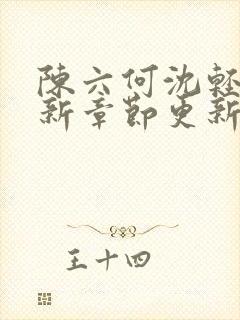 陳六何沈輕
新章節更新
王十四